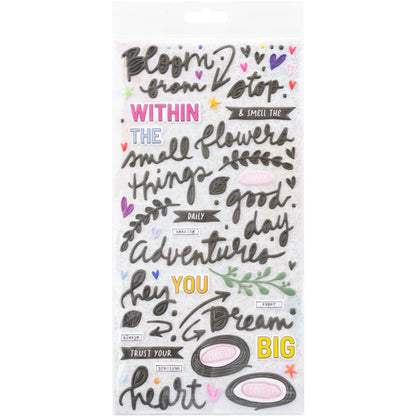 Bloom
from
stop
WITHIN
& SMELL THE
THE
small flowers
things
good
DAILY
day
amazing
adventures
hey
YOU
super
Dream
always
BIG
TRUST YOUR
precious
heart